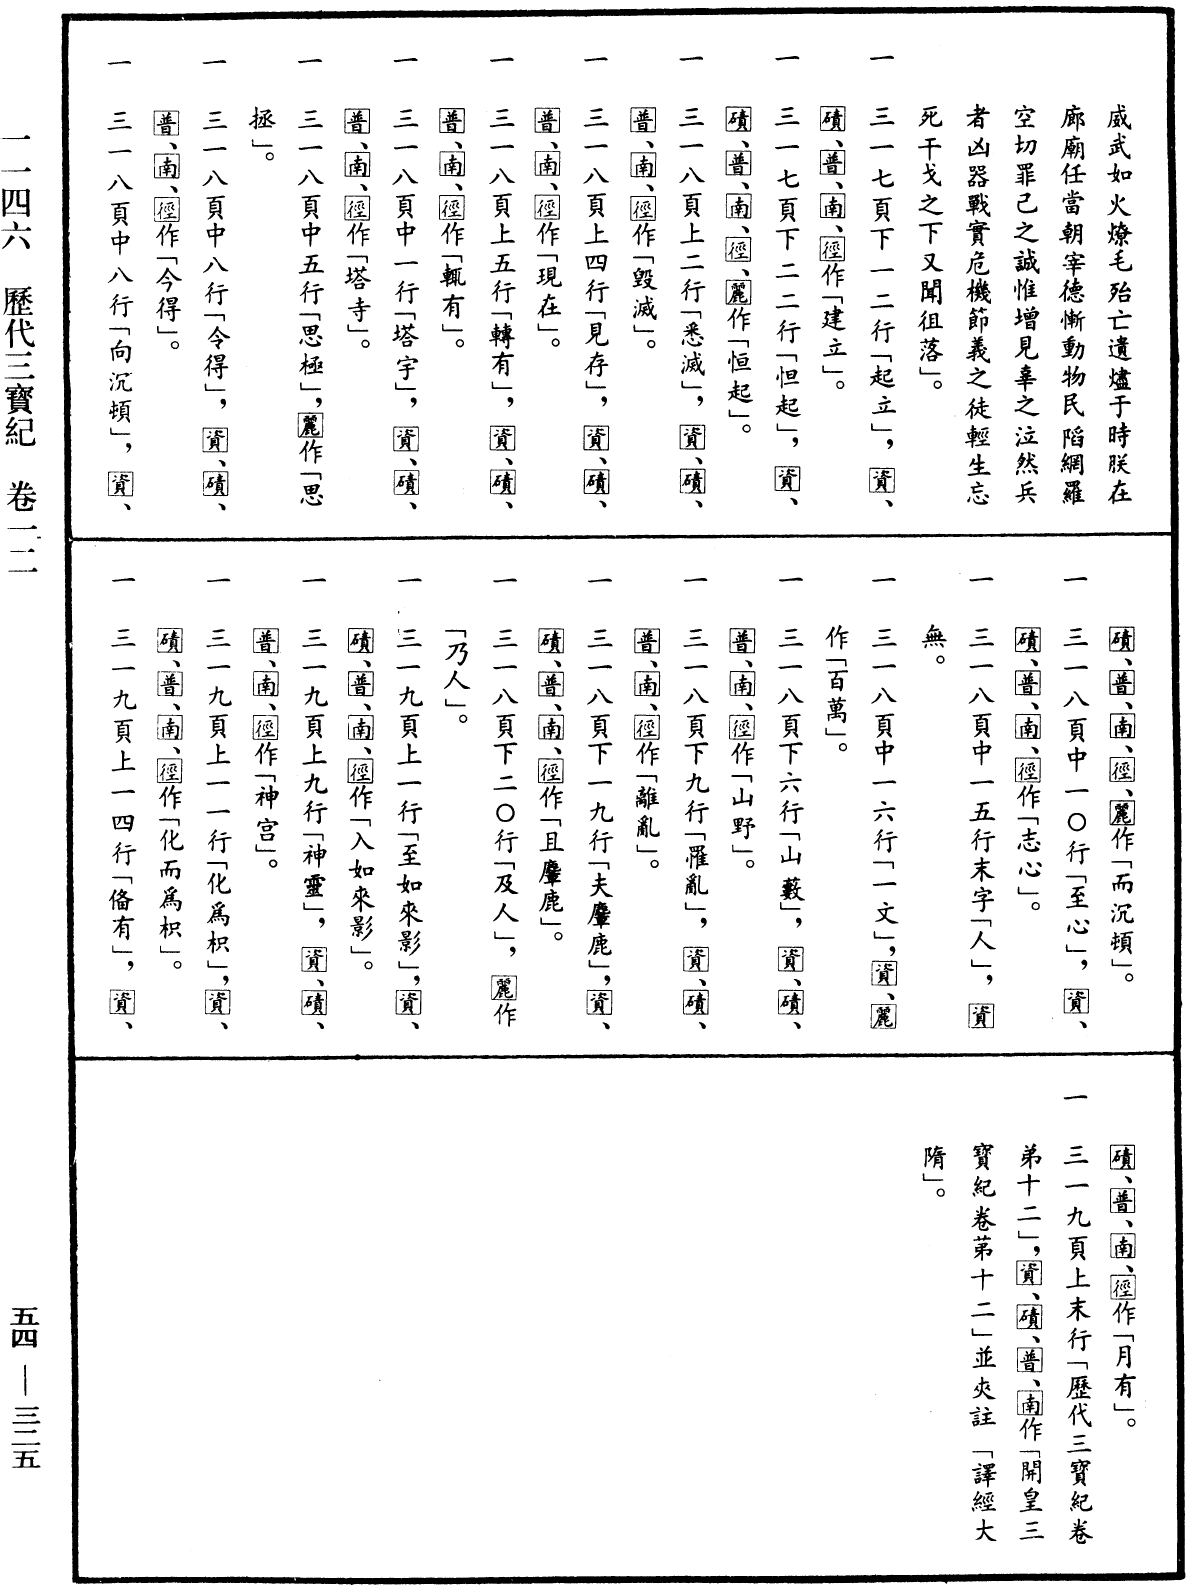 威武如火燎毛殆亡遺燼于時朕在
廊廟任當朝宰德慚動物民陷網羅
空切罪己之誠惟增見辜之泣然兵
者凶器戰實危機節義之徒輕生忘
死干戈之下又聞徂落」。
一　三一七頁下一二行「起立」，資、
磧、普、南、徑作「建立」。
一　三一七頁下二二行「怛起」，資、
磧、普、南、徑、麗作「恒起」。
一　三一八頁上二行「悉滅」，資、磧、
普、南、徑作「毀滅」。
一　三一八頁上四行「見存」，資、磧、
普、南、徑作「現在」。
一　三一八頁上五行「轉有」，資、磧、
普、南、徑作「輒有」。
一　三一八頁中一行「塔宇」，資、磧、
普、南、徑作「塔寺」。
一　三一八頁中五行「思極」，麗作「思
拯」。
一　三一八頁中八行「令得」，資、磧、
普、南、徑作「今得」。
一　三一八頁中八行「向沉頓」，資、
磧、普、南、徑、麗作「而沉頓」。
一　三一八頁中一〇行「至心」，資、
磧、普、南、徑作「志心」。
一　三一八頁中一五行末字「人」，資
無。
一　三一八頁中一六行「一文」，資、麗
作「百萬」。
一　三一八頁下六行「山藪」，資、磧、
普、南、徑作「山野」。
一　三一八頁下九行「罹亂」，資、磧、
普、南、徑作「離亂」。
一　三一八頁下一九行「夫麞鹿」，資、
磧、普、南、徑作「且麞鹿」。
一　三一八頁下二〇行「及人」，麗作
「乃人」。
一　三一九頁上一行「至如來影」，資、
磧、普、南、徑作「入如來影」。
一　三一九頁上九行「神靈」，資、磧、
普、南、徑作「神宮」。
一　三一九頁上一一行「化爲枳」，資、
磧、普、南、徑作「化而爲枳」。
一　三一九頁上一四行「俻有」，資、
磧、普、南、徑作「月有」。
一　三一九頁上末行「歷代三寶紀卷
弟十二」，資、磧、普、南作「開皇三
寶紀卷苐十二」並夾註「譯經大
隋」。
一一四六　歷代三寶紀　卷一二
五四—三二五